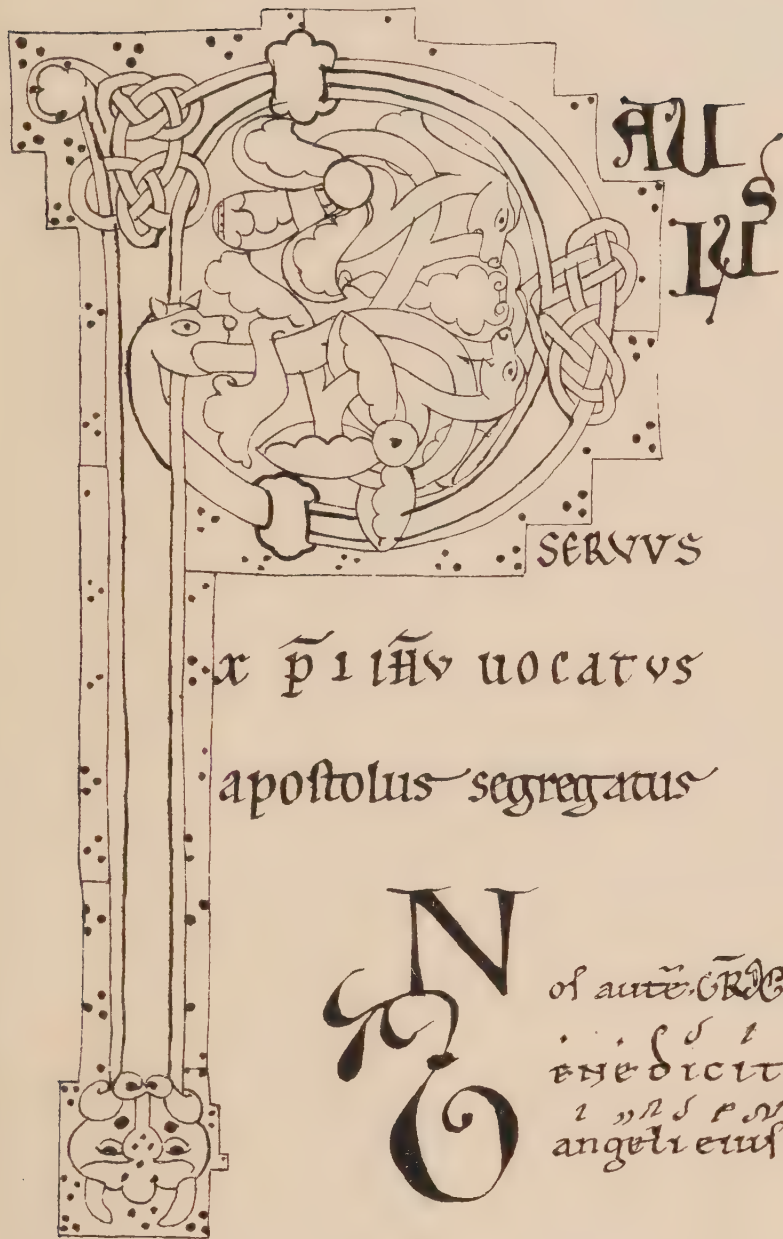 PAU
LUS
SERVVS
xp̄i ih̄v uocatvs
apoſtolus segregatus
N
oſ autē
B
enedicit
angeli eiuſ